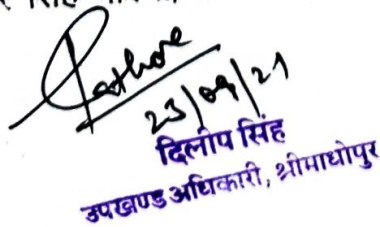 Rathore
23/09/21
दिलीप सिंह
उपखण्ड अधिकारी, श्रीमाधोपुर